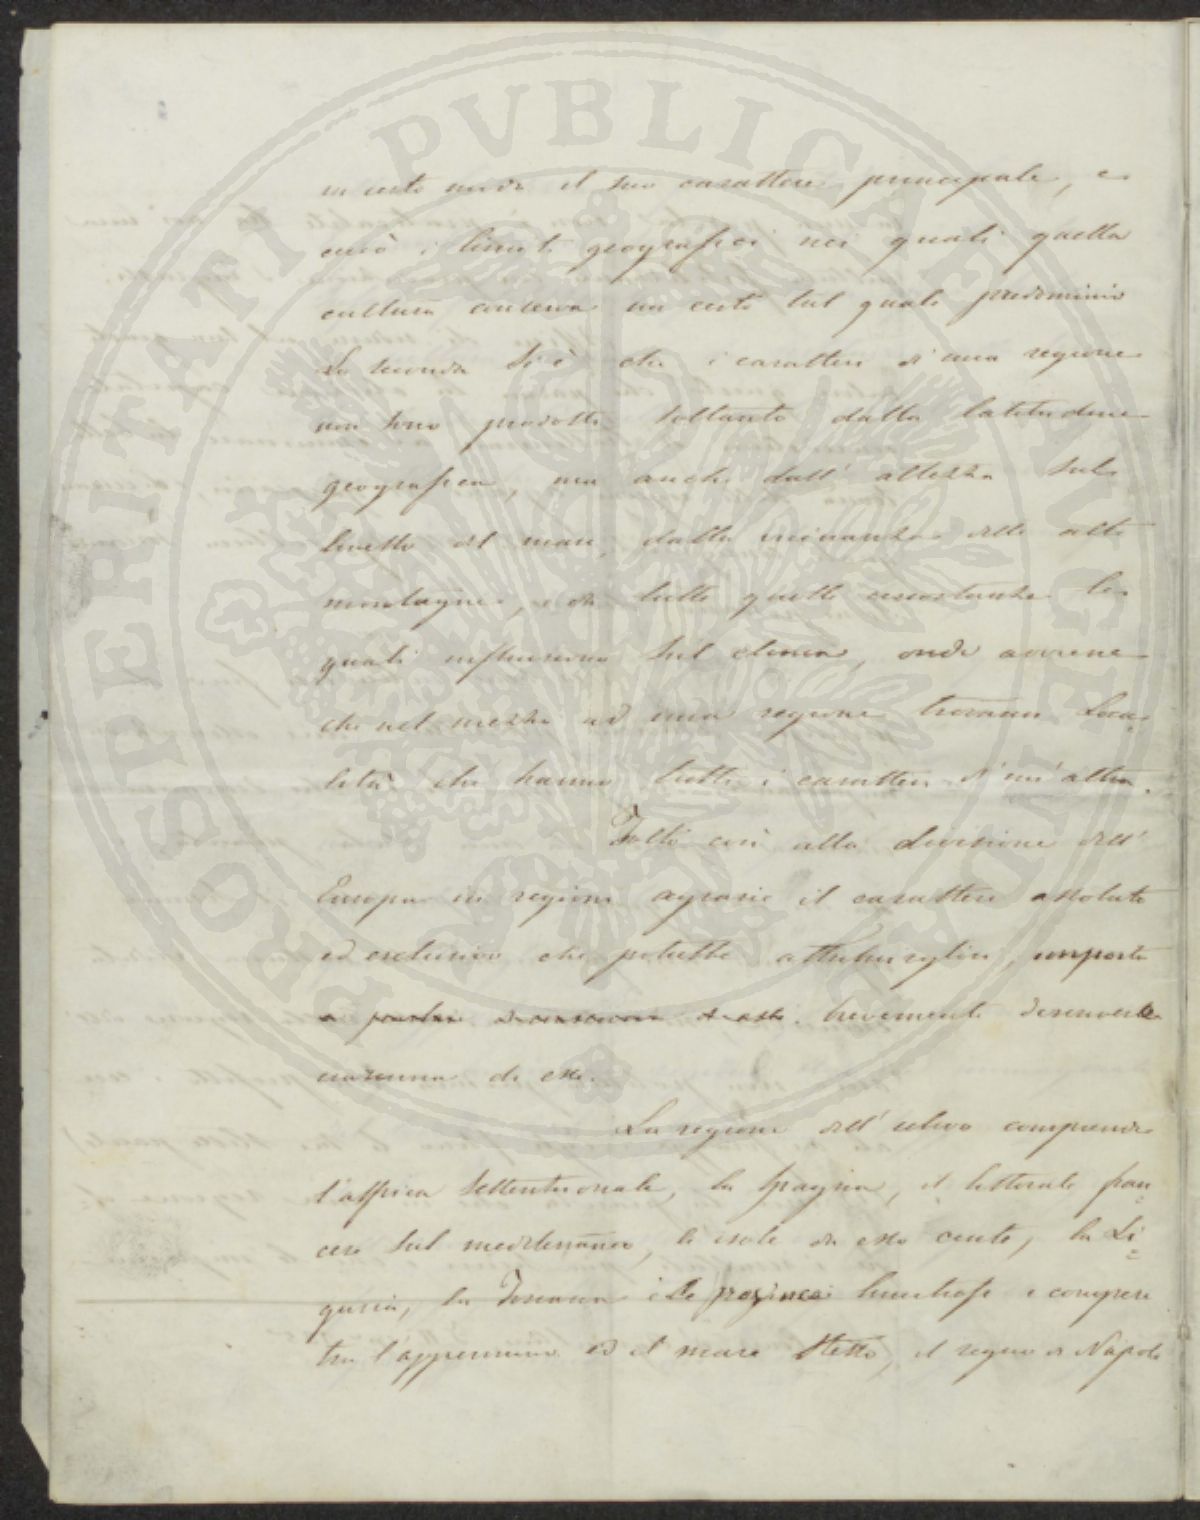 in certo modo il suo carattere principale, e
ciò i limiti geografici nei quali quella
cultura conserva un certo tal quale predominio
La seconda si è che i caratteri d'una regione
non sono prodotti soltanto dalla latitudine
geografica, ma anche dall'altezza sul
livello del mare, dalla vicinanza delle alte
montagne, e da tutte quelle circostanze le
quali influiscono sul clima, onde avviene
che nel mezzo ad una regione trovansi loca-
lità che hanno tutti i caratteri d'un'altra.
Tolto così alla divisione dell'
Europa in regioni agrarie il carattere assoluto
ed esclusivo che potrebbe attribuirglisi, importa
brevemente descrivere
ciascuna di esse.
La regione dell'ulivo comprende
l'affrica settentrionale, la Spagna, il littorale fran-
cese sul mediterraneo, le isole da esso cinte, la Li-
guria, la Toscana e le province comprese
tra l'appennino ed il mare stesso, il regno di Napoli
PROSPERITATI PVBLICAE AVGENDAE